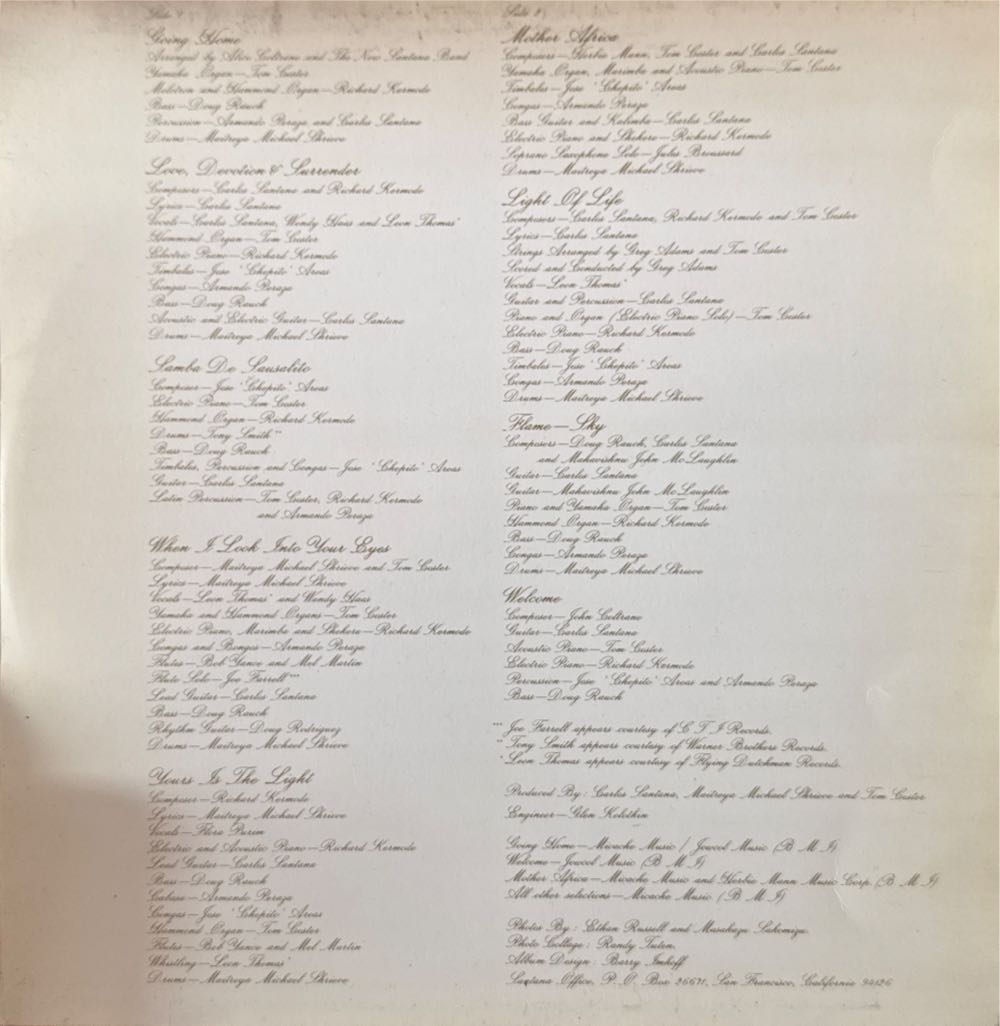 Side 1
Going Home
Arranged by Alice Coltrane and The New Santana Band
Yamaha Organ—Tom Coster
Melotron and Hammond Organ—Richard Kermode
Bass—Doug Rauch
Percussion—Armando Peraza and Carlos Santana
Drums—Maitreya Michael Shrieve
Love, Devotion & Surrender
Composers—Carlos Santana and Richard Kermode
Lyrics—Carlos Santana
Vocals—Carlos Santana, Wendy Haas and Leon Thomas*
Hammond Organ—Tom Coster
Electric Piano—Richard Kermode
Timbales—Jose 'Chepito' Areas
Congas—Armando Peraza
Bass—Doug Rauch
Acoustic and Electric Guitar—Carlos Santana
Drums—Maitreya Michael Shrieve
Samba De Sausalito
Composer—Jose 'Chepito' Areas
Electric Piano—Tom Coster
Hammond Organ—Richard Kermode
Drums—Tony Smith**
Bass—Doug Rauch
Timbales, Percussion and Congas—Jose 'Chepito' Areas
Guitar—Carlos Santana
Latin Percussion—Tom Coster, Richard Kermode
and Armando Peraza
When I Look Into Your Eyes
Composer—Maitreya Michael Shrieve and Tom Coster
Lyrics—Maitreya Michael Shrieve
Vocals—Leon Thomas* and Wendy Haas
Yamaha and Hammond Organs—Tom Coster
Electric Piano, Marimba and Shekere—Richard Kermode
Congas and Bongos—Armando Peraza
Flutes—Bob Yance and Mel Martin
Flute Solo—Joe Farrell***
Lead Guitar—Carlos Santana
Bass—Doug Rauch
Rhythm Guitar—Doug Rodriguez
Drums—Maitreya Michael Shrieve
Yours Is The Light
Composer—Richard Kermode
Lyrics—Maitreya Michael Shrieve
Vocals—Flora Purim
Electric and Acoustic Piano—Richard Kermode
Lead Guitar—Carlos Santana
Bass—Doug Rauch
Cabasa—Armando Peraza
Congas—Jose 'Chepito' Areas
Hammond Organ—Tom Coster
Flutes—Bob Yance and Mel Martin
Whistling—Leon Thomas*
Drums—Maitreya Michael Shrieve
Side 2
Mother Africa
Composers—Herbie Mann, Tom Coster and Carlos Santana
Yamaha Organ, Marimba and Acoustic Piano—Tom Coster
Timbales—Jose 'Chepito' Areas
Congas—Armando Peraza
Bass Guitar and Kalimba—Carlos Santana
Electric Piano and Shekere—Richard Kermode
Soprano Saxophone Solo—Jules Broussard
Drums—Maitreya Michael Shrieve
Light Of Life
Composers—Carlos Santana, Richard Kermode and Tom Coster
Lyrics—Carlos Santana
Strings Arranged by Greg Adams and Tom Coster
Scored and Conducted by Greg Adams
Vocals—Leon Thomas*
Guitar and Percussion—Carlos Santana
Piano and Organ (Electric Piano Solo)—Tom Coster
Electric Piano—Richard Kermode
Bass—Doug Rauch
Timbales—Jose 'Chepito' Areas
Congas—Armando Peraza
Drums—Maitreya Michael Shrieve
Flame—Sky
Composers—Doug Rauch, Carlos Santana
and Mahavishnu John McLaughlin
Guitar—Carlos Santana
Guitar—Mahavishnu John McLaughlin
Piano and Yamaha Organ—Tom Coster
Hammond Organ—Richard Kermode
Bass—Doug Rauch
Congas—Armando Peraza
Drums—Maitreya Michael Shrieve
Welcome
Composer—John Coltrane
Guitar—Carlos Santana
Acoustic Piano—Tom Coster
Electric Piano—Richard Kermode
Percussion—Jose 'Chepito' Areas and Armando Peraza
Bass—Doug Rauch
*** Joe Farrell appears courtesy of C T I Records.
** Tony Smith appears courtesy of Warner Brothers Records.
* Leon Thomas appears courtesy of Flying Dutchman Records.
Produced By: Carlos Santana, Maitreya Michael Shrieve and Tom Coster
Engineer—Glen Kolotkin
Going Home—Micache Music / Jowcol Music (B M I)
Welcome—Jowcol Music (B M I)
Mother Africa—Micache Music and Herbie Mann Music Corp. (B M I)
All other selections—Micache Music (B M I)
Photos By: Ethan Russell and Masakazu Sakomizu.
Photo Collage: Randy Tuten.
Album Design: Barry Imhoff
Santana Office, P. O. Box 26671, San Francisco, California 94126